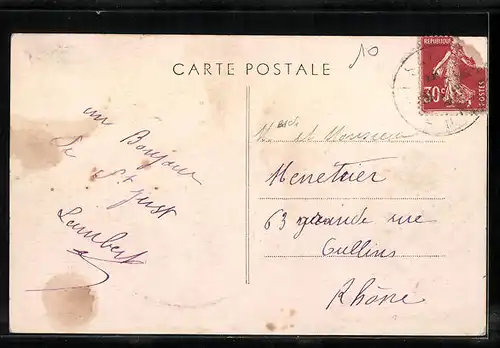 10
CARTE POSTALE
REPUBLIQUE
30c
POSTES
un Bonjour
de
St just
Lambert
et Monsieur
Menetrier
63 grande rue
Oullins
Rhône